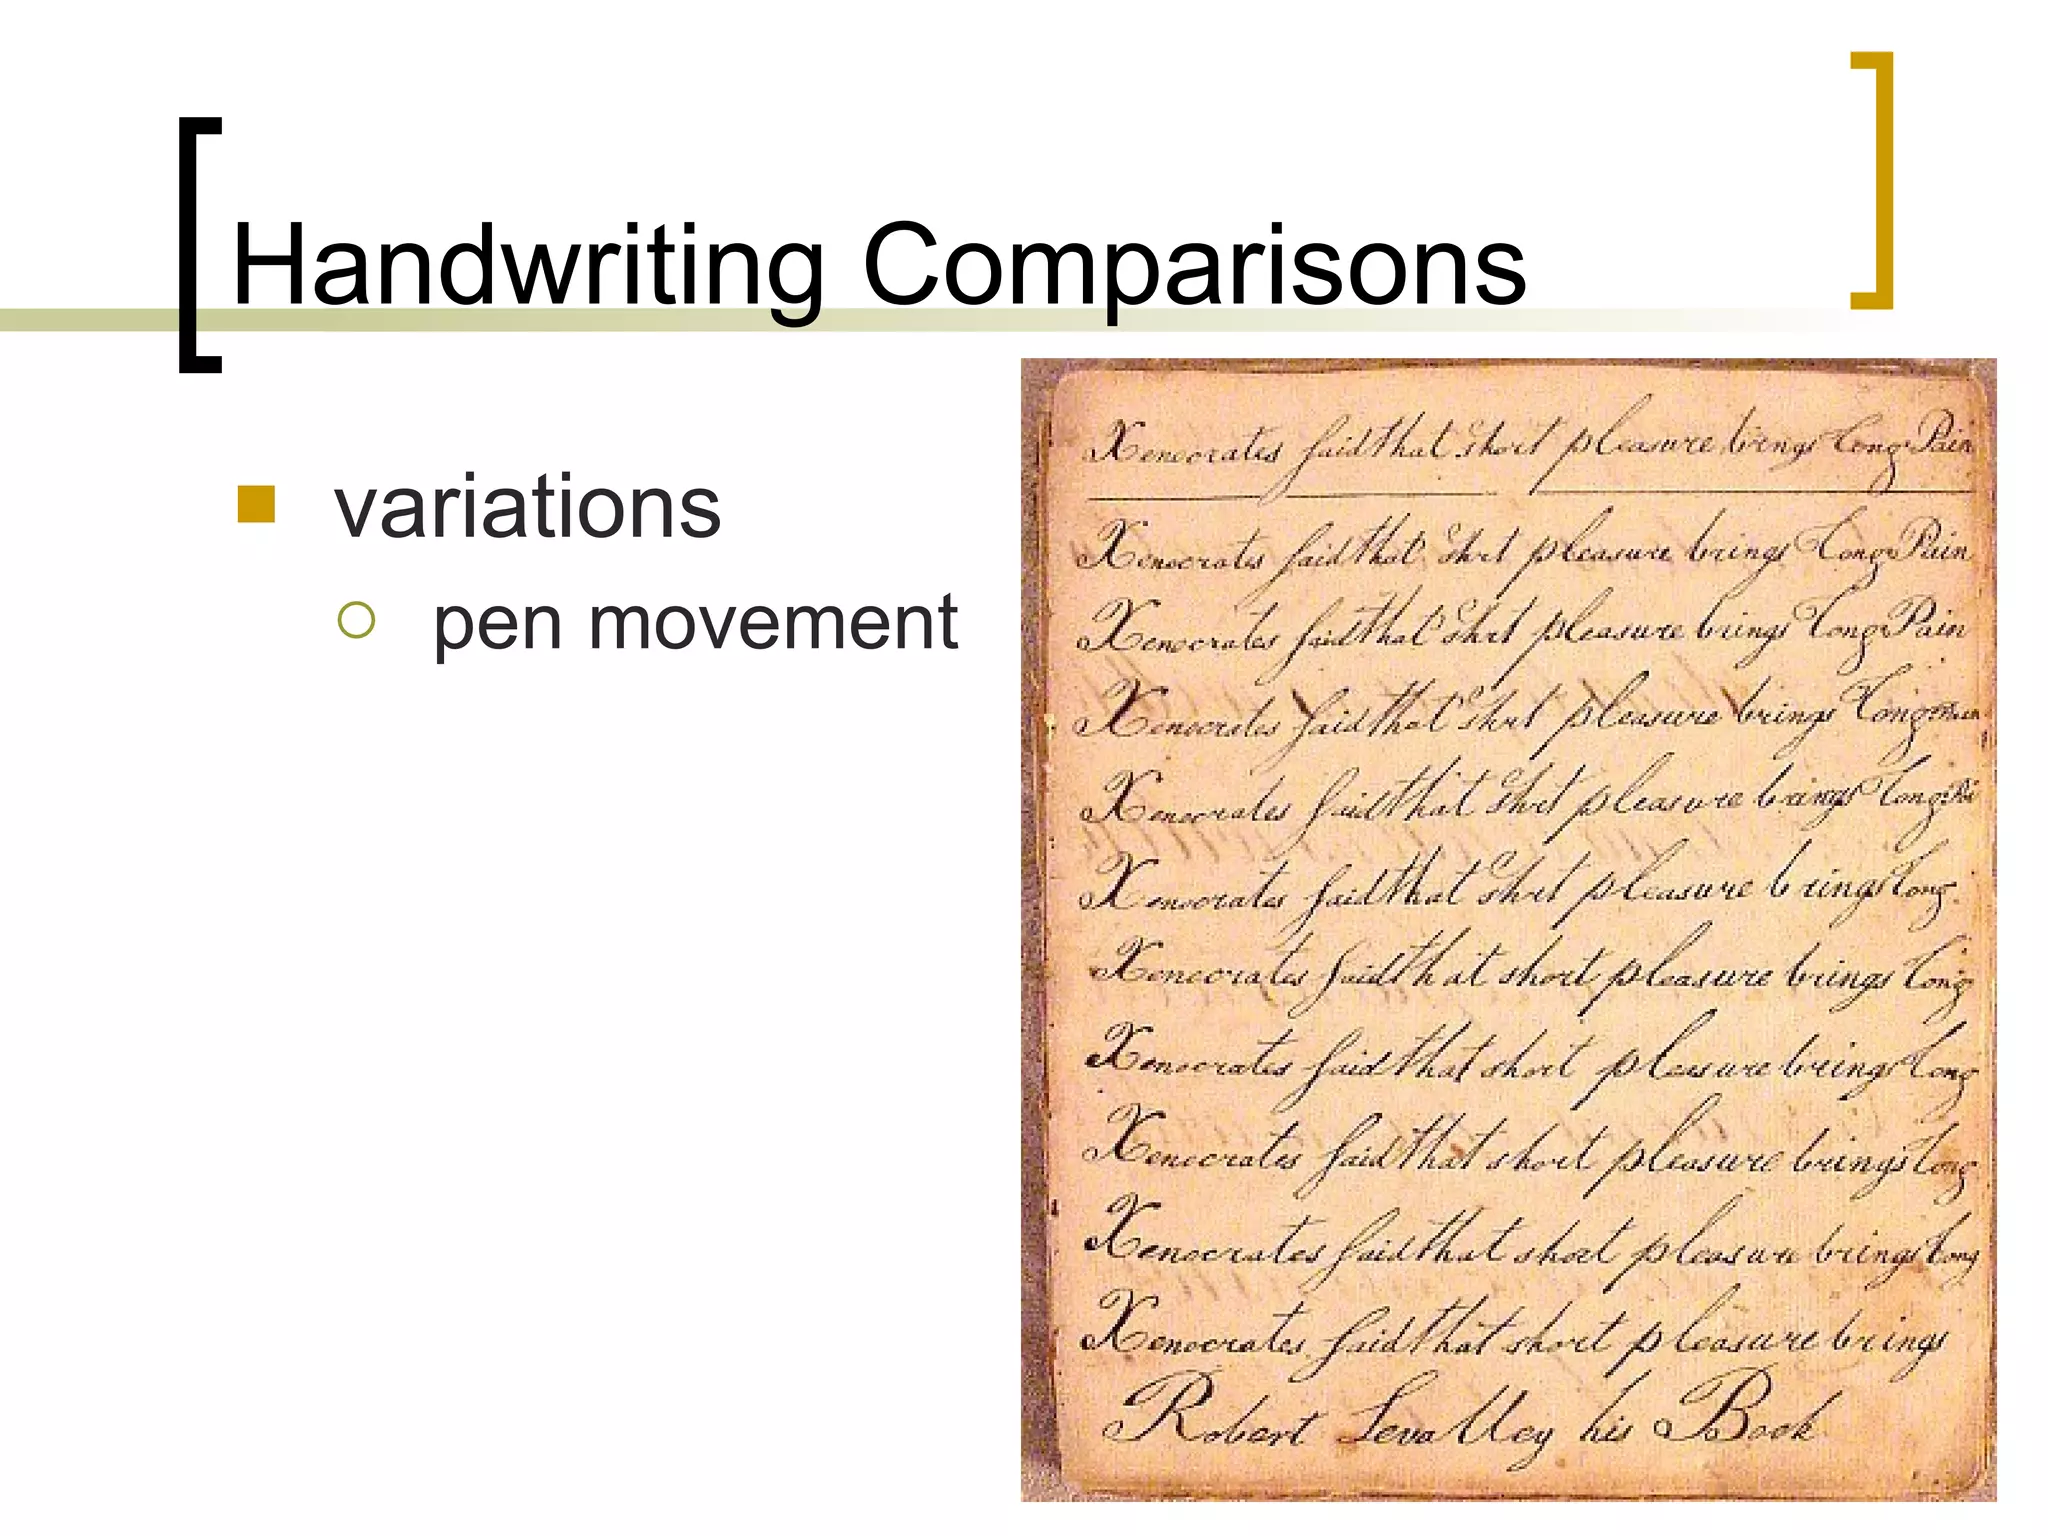 Handwriting Comparisons
variations
pen movement
Xenocrates said that short pleasure brings Long Pain
Xenocrates said that Shrt pleasure brings Long Pain
Xenocrates said that Shrt pleasure brings Long Pain
Xenocrates said that Shrt pleasure brings Long
Xenocrates said that Shrt pleasure brings Long Pai
Xenocrates said that Shrt pleasure brings Long
Xenocrates said that short pleasure brings Long
Xenocrates said that short pleasure brings Long
Xenocrates said that short pleasure brings Long
Xenocrates said that short pleasure brings Long
Xenocrates said that short pleasure brings
Robert Levalley his Book